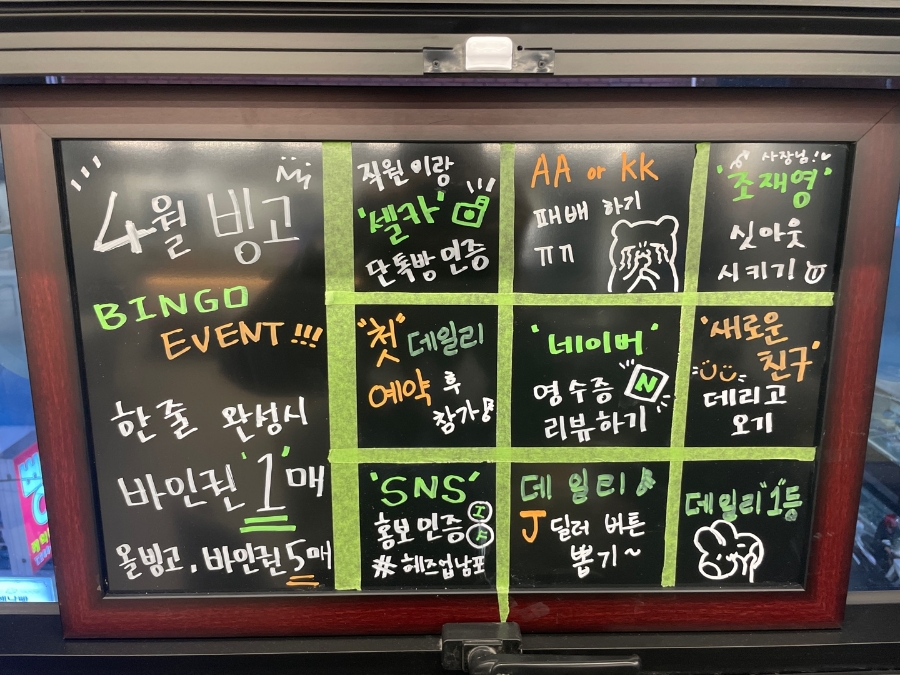 4월 빙고
BINGO
EVENT!!!
한줄 완성시
바인권 '1'매
올빙고, 바인권 5매
직원이랑
'셀카'
단톡방 인증
AA or KK
패배 하기
ㅠㅠ
사장님!
'조재영'
싯아웃
시키기!
"첫" 데일리
예약 후
참가♪
'네이버'
영수증 N
리뷰하기
"새로운
친구"
데리고
오기
'SNS'
홍보 인증
#헤즈업남포
데일리♪
J 딜러 버튼
뽑기~
데일리"1"등